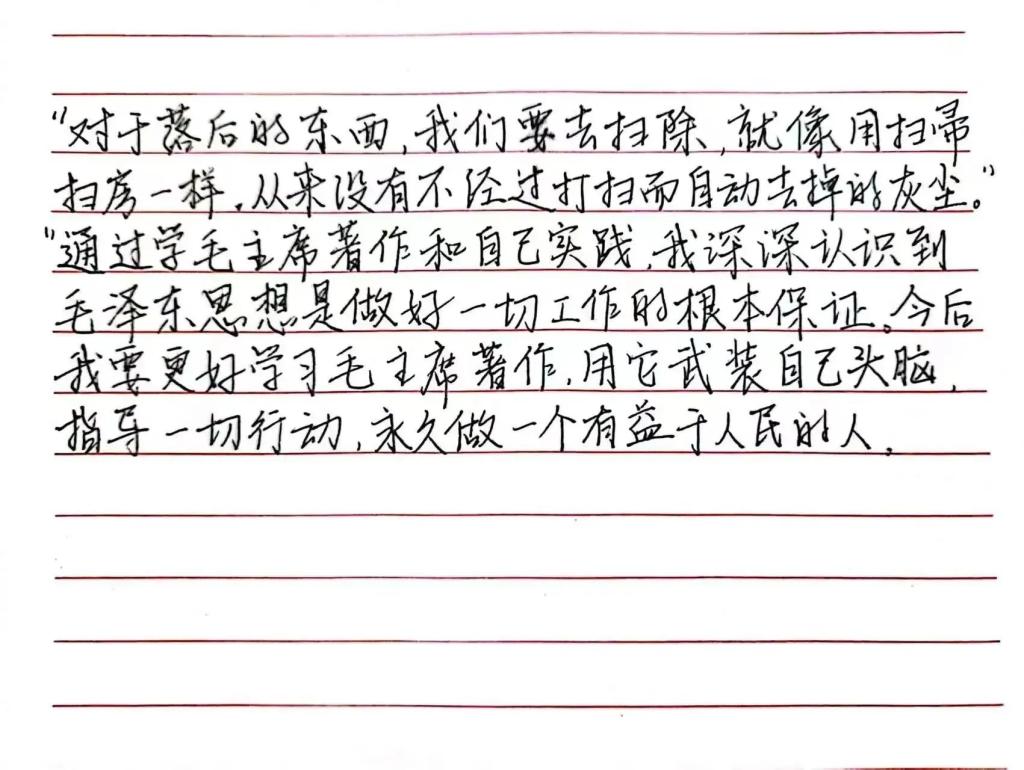 “对于落后的东西，我们要去扫除，就像用扫帚
扫房一样，从来没有不经过打扫而自动去掉的灰尘。”
“通过学毛主席著作和自己实践，我深深认识到
毛泽东思想是做好一切工作的根本保证。今后
我要更好学习毛主席著作，用它武装自己头脑，
指导一切行动，永久做一个有益于人民的人，